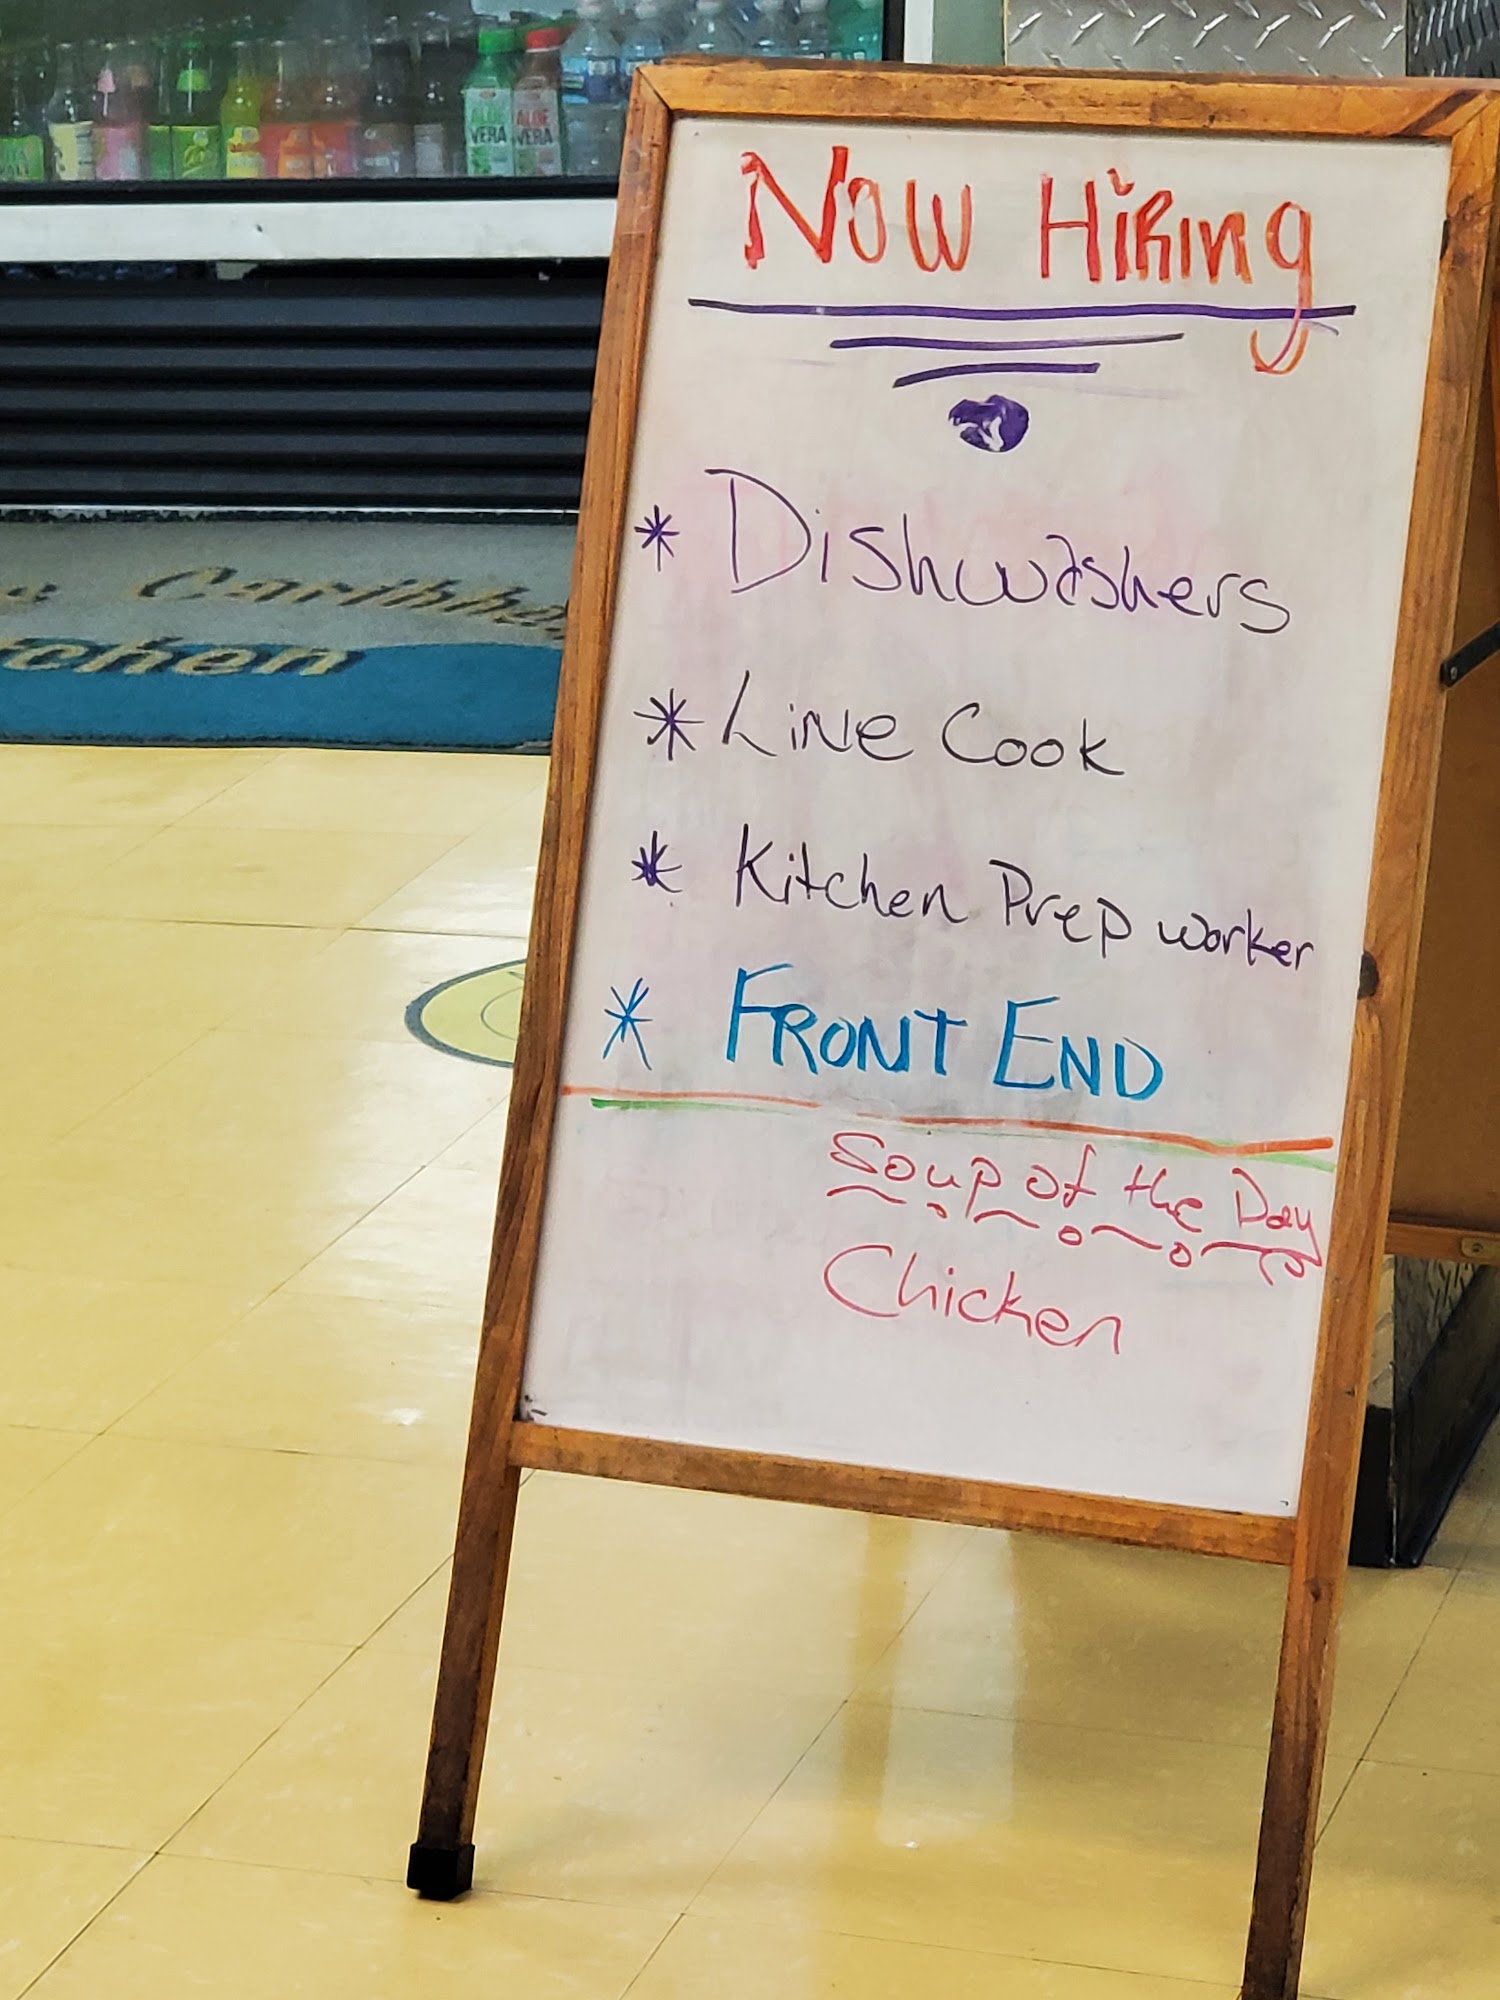 ALOE
VERA
ALOE
VERA
Now Hiring
* Dishwashers
* Line Cook
* Kitchen Prep worker
* FRONT END
Soup of the Day
Chicken